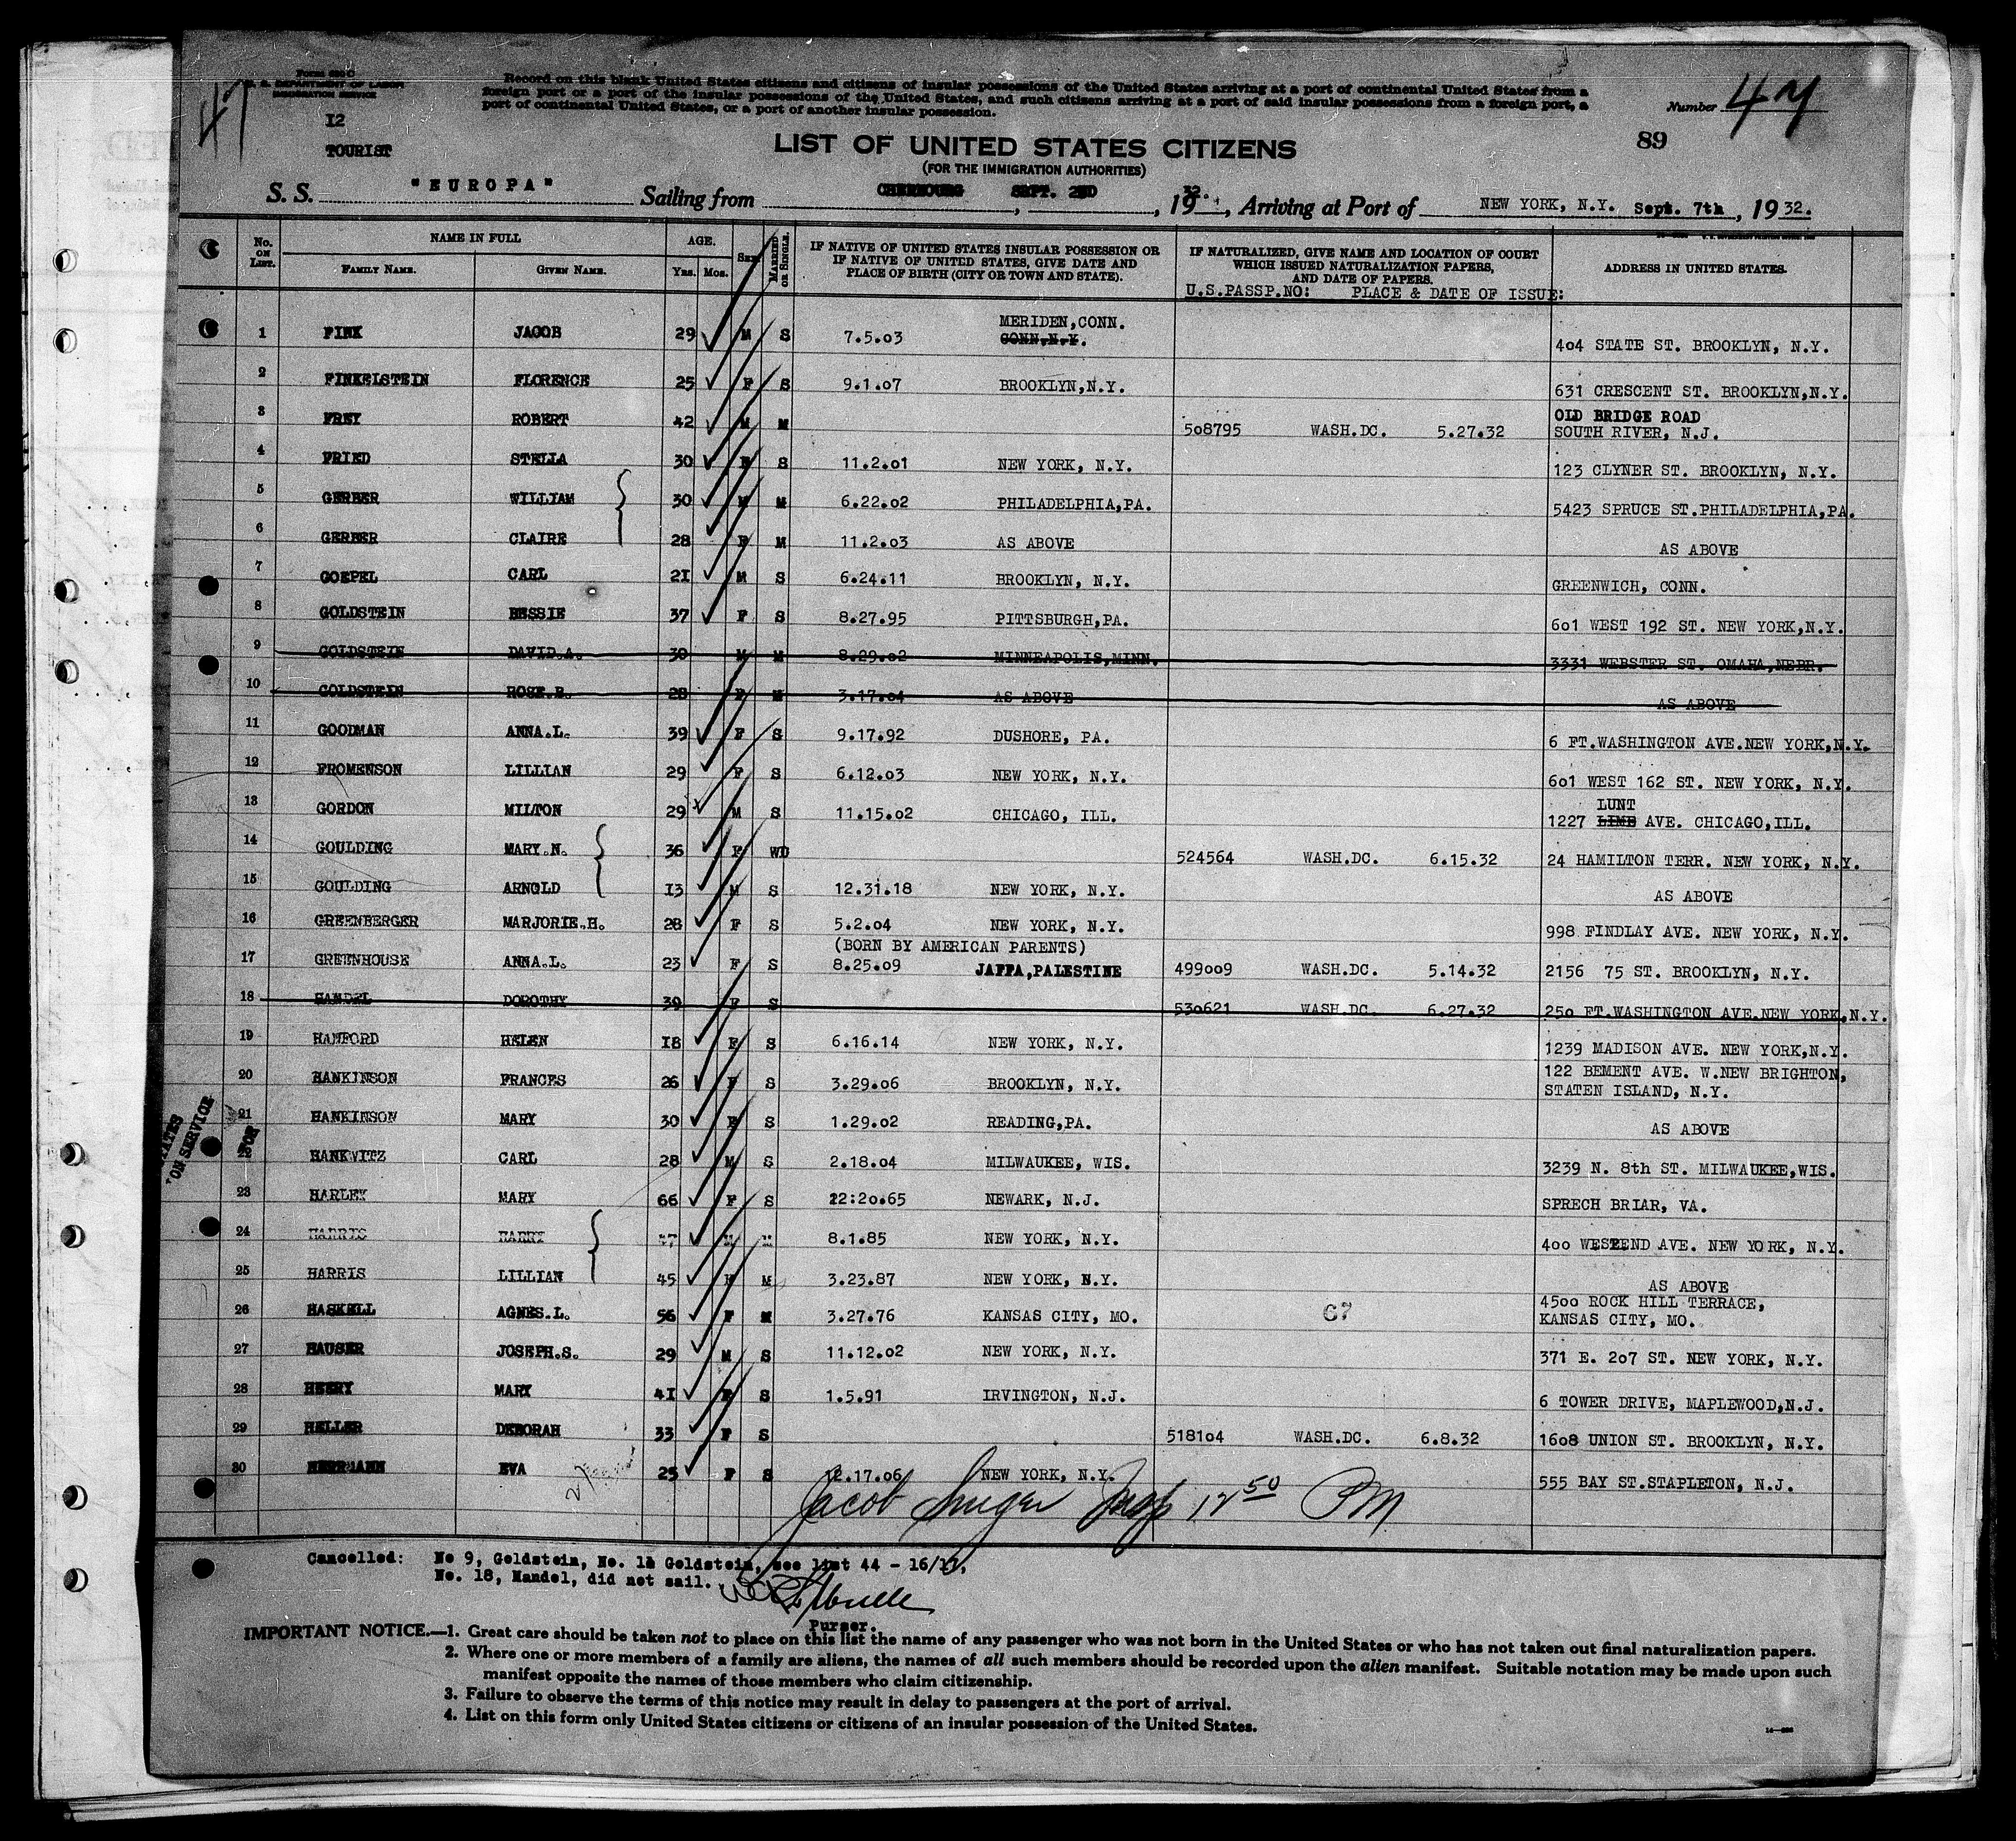 Form 630 C
U. S. DEPARTMENT OF LABOR
IMMIGRATION SERVICE
47
12
TOURIST
Record on this blank United States citizens and citizens of insular possessions of the United States arriving at a port of continental United States from a
foreign port or a port of the insular possessions of the United States, and such citizens arriving at a port of said insular possessions from a foreign port, a
port of continental United States, or a port of another insular possession.
Number 47
89
LIST OF UNITED STATES CITIZENS
(FOR THE IMMIGRATION AUTHORITIES)
S. S. "EUROPA" Sailing from CHERBOURG SEPT. 2ND, 1932., Arriving at Port of NEW YORK, N.Y. Sept. 7th, 1932.
No. ON LIST. NAME IN FULL FAMILY NAME. GIVEN NAME. AGE. Yrs. Mos. SEX MARRIED OR SINGLE. IF NATIVE OF UNITED STATES INSULAR POSSESSION OR IF NATIVE OF UNITED STATES, GIVE DATE AND PLACE OF BIRTH (CITY OR TOWN AND STATE). IF NATURALIZED, GIVE NAME AND LOCATION OF COURT WHICH ISSUED NATURALIZATION PAPERS, AND DATE OF PAPERS. ADDRESS IN UNITED STATES.
U.S.PASSP.NO: PLACE & DATE OF ISSUE:
MERIDEN,CONN.
1 FINK JACOB 29 M S 7.5.03 CONN,N.Y. 404 STATE ST. BROOKLYN, N.Y.
2 FINKELSTEIN FLORENCE 25 F S 9.1.07 BROOKLYN,N.Y. 631 CRESCENT ST. BROOKLYN,N.Y.
OLD BRIDGE ROAD
3 FREY ROBERT 42 M M 508795 WASH.DC. 5.27.32 SOUTH RIVER, N.J.
4 FRIED STELLA 30 F S 11.2.01 NEW YORK, N.Y. 123 CLYNER ST. BROOKLYN, N.Y.
5 GERBER WILLIAM 30 M M 6.22.02 PHILADELPHIA,PA. 5423 SPRUCE ST.PHILADELPHIA,PA.
6 GERBER CLAIRE 28 F M 11.2.03 AS ABOVE AS ABOVE
7 GOEPEL CARL 21 M S 6.24.11 BROOKLYN, N.Y. GREENWICH, CONN.
8 GOLDSTEIN BESSIE 37 F S 8.27.95 PITTSBURGH,PA. 601 WEST 192 ST. NEW YORK,N.Y.
9 GOLDSTEIN DAVID.A. 30 M M 8.29.02 MINNEAPOLIS,MINN. 3331 WEBSTER ST. OMAHA,NEBR.
10 GOLDSTEIN ROSE.B. 28 F M 3.17.04 AS ABOVE AS ABOVE
11 GOODMAN ANNA.L. 39 F S 9.17.92 DUSHORE, PA. 6 FT.WASHINGTON AVE.NEW YORK,N.Y.
12 FROMENSON LILLIAN 29 F S 6.12.03 NEW YORK, N.Y. 601 WEST 162 ST. NEW YORK, N.Y.
LUNT
13 GORDON MILTON 29 M S 11.15.02 CHICAGO, ILL. 1227 LIME AVE. CHICAGO,ILL.
14 GOULDING MARY.N. 36 F WD 524564 WASH.DC. 6.15.32 24 HAMILTON TERR. NEW YORK, N.Y.
15 GOULDING ARNOLD 13 M S 12.31.18 NEW YORK, N.Y. AS ABOVE
16 GREENBERGER MARJORIE.H. 28 F S 5.2.04 NEW YORK, N.Y. 998 FINDLAY AVE. NEW YORK, N.Y.
(BORN BY AMERICAN PARENTS)
17 GREENHOUSE ANNA.L. 23 F S 8.25.09 JAFFA,PALESTINE 499009 WASH.DC. 5.14.32 2156 75 ST. BROOKLYN, N.Y.
18 HANDEL DOROTHY 39 F S 530621 WASH.DC. 6.27.32 250 FT.WASHINGTON AVE.NEW YORK,N.Y.
19 HANFORD HELEN 18 F S 6.16.14 NEW YORK, N.Y. 1239 MADISON AVE. NEW YORK,N.Y.
122 BEMENT AVE. W.NEW BRIGHTON,
20 HANKINSON FRANCES 26 F S 3.29.06 BROOKLYN, N.Y. STATEN ISLAND, N.Y.
21 HANKINSON MARY 30 F S 1.29.02 READING,PA. AS ABOVE
HANKWITZ CARL 28 M S 2.18.04 MILWAUKEE, WIS. 3239 N. 8th ST. MILWAUKEE,WIS.
23 HARLEY MARY 66 F S 12:20.65 NEWARK, N.J. SPRECH BRIAR, VA.
24 HARRIS HARRY 47 M M 8.1.85 NEW YORK, N.Y. 400 WESTEND AVE. NEW YORK, N.Y.
25 HARRIS LILLIAN 45 F M 3.23.87 NEW YORK, N.Y. AS ABOVE
4500 ROCK HILL TERRACE,
26 HASKELL AGNES.L. 56 F M 3.27.76 KANSAS CITY, MO. 67 KANSAS CITY, MO.
27 HAUSER JOSEPH.S. 29 M S 11.12.02 NEW YORK, N.Y. 371 E. 207 ST. NEW YORK, N.Y.
28 HEERY MARY 41 F S 1.5.91 IRVINGTON, N.J. 6 TOWER DRIVE, MAPLEWOOD,N.J.
29 HELLER DEBORAH 33 F S 518104 WASH.DC. 6.8.32 1608 UNION ST. BROOKLYN, N.Y.
30 HERRMANN EVA 25 F S 12.17.06 NEW YORK, N.Y. 555 BAY ST.STAPLETON, N.J.
Jacob Insp 12 50 PM
Cancelled: No 9, Goldstein, No. 10 Goldstein, see list 44 - 16/17,
No. 18, Handel, did not sail.
Purser.
IMPORTANT NOTICE.—1. Great care should be taken not to place on this list the name of any passenger who was not born in the United States or who has not taken out final naturalization papers.
2. Where one or more members of a family are aliens, the names of all such members should be recorded upon the alien manifest. Suitable notation may be made upon such
manifest opposite the names of those members who claim citizenship.
3. Failure to observe the terms of this notice may result in delay to passengers at the port of arrival.
4. List on this form only United States citizens or citizens of an insular possession of the United States.